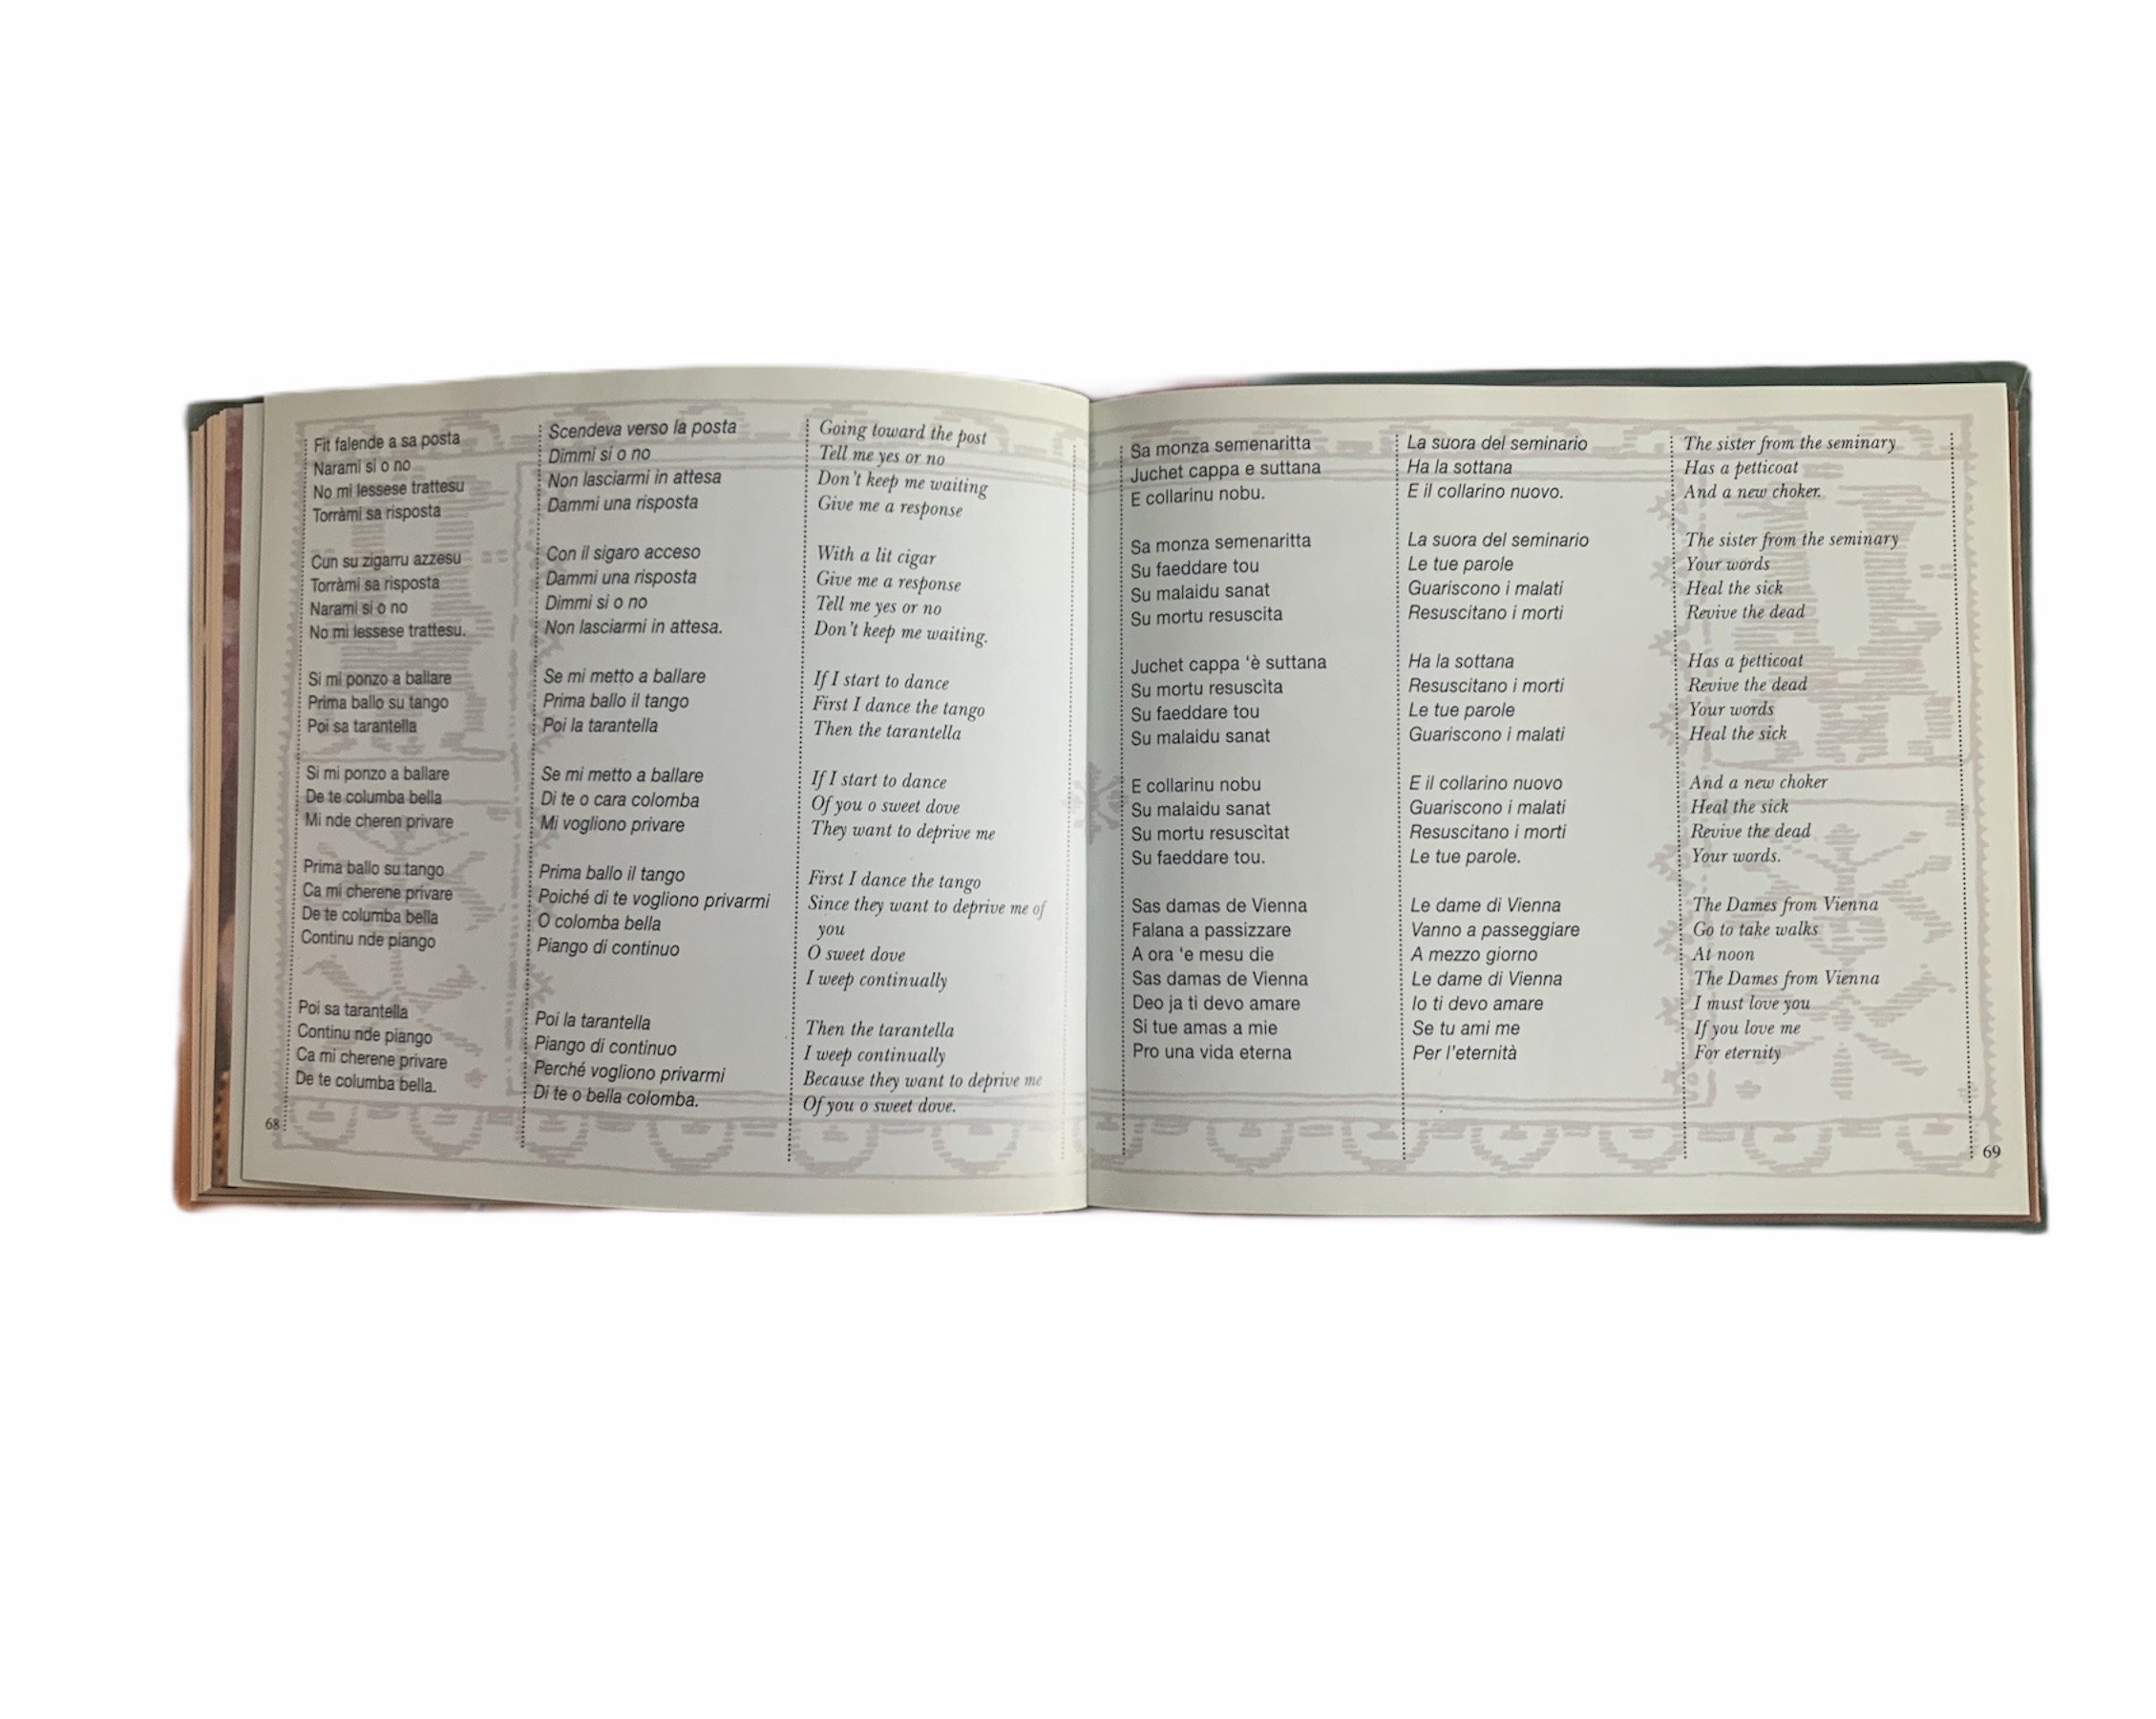 Fit falende a sa posta
Narami si o no
No mi lessese trattesu
Torràmi sa risposta
Cun su zigarru azzesu
Torràmi sa risposta
Narami si o no
No mi lessese trattesu.
Si mi ponzo a ballare
Prima ballo su tango
Poi sa tarantella
Si mi ponzo a ballare
De te columba bella
Mi nde cheren privare
Prima ballo su tango
Ca mi cherene privare
De te columba bella
Continu nde piango
Poi sa tarantella
Continu nde piango
Ca mi cherene privare
De te columba bella.
68
Scendeva verso la posta
Dimmi si o no
Non lasciarmi in attesa
Dammi una risposta
Con il sigaro acceso
Dammi una risposta
Dimmi si o no
Non lasciarmi in attesa.
Se mi metto a ballare
Prima ballo il tango
Poi la tarantella
Se mi metto a ballare
Di te o cara colomba
Mi vogliono privare
Prima ballo il tango
Poiché di te vogliono privarmi
O colomba bella
Piango di continuo
Poi la tarantella
Piango di continuo
Perché vogliono privarmi
Di te o bella colomba.
Going toward the post
Tell me yes or no
Don't keep me waiting
Give me a response
With a lit cigar
Give me a response
Tell me yes or no
Don't keep me waiting.
If I start to dance
First I dance the tango
Then the tarantella
If I start to dance
Of you o sweet dove
They want to deprive me
First I dance the tango
Since they want to deprive me of
you
O sweet dove
I weep continually
Then the tarantella
I weep continually
Because they want to deprive me
Of you o sweet dove.
Sa monza semenaritta
Juchet cappa e suttana
E collarinu nobu.
Sa monza semenaritta
Su faeddare tou
Su malaidu sanat
Su mortu resuscita
Juchet cappa 'è suttana
Su mortu resuscìta
Su faeddare tou
Su malaidu sanat
E collarinu nobu
Su malaidu sanat
Su mortu resuscìtat
Su faeddare tou.
Sas damas de Vienna
Falana a passizzare
A ora 'e mesu die
Sas damas de Vienna
Deo ja ti devo amare
Si tue amas a mie
Pro una vida eterna
La suora del seminario
Ha la sottana
E il collarino nuovo.
La suora del seminario
Le tue parole
Guariscono i malati
Resuscitano i morti
Ha la sottana
Resuscitano i morti
Le tue parole
Guariscono i malati
E il collarino nuovo
Guariscono i malati
Resuscitano i morti
Le tue parole.
Le dame di Vienna
Vanno a passeggiare
A mezzo giorno
Le dame di Vienna
Io ti devo amare
Se tu ami me
Per l'eternità
The sister from the seminary
Has a petticoat
And a new choker.
The sister from the seminary
Your words
Heal the sick
Revive the dead
Has a petticoat
Revive the dead
Your words
Heal the sick
And a new choker
Heal the sick
Revive the dead
Your words.
The Dames from Vienna
Go to take walks
At noon
The Dames from Vienna
I must love you
If you love me
For eternity
69